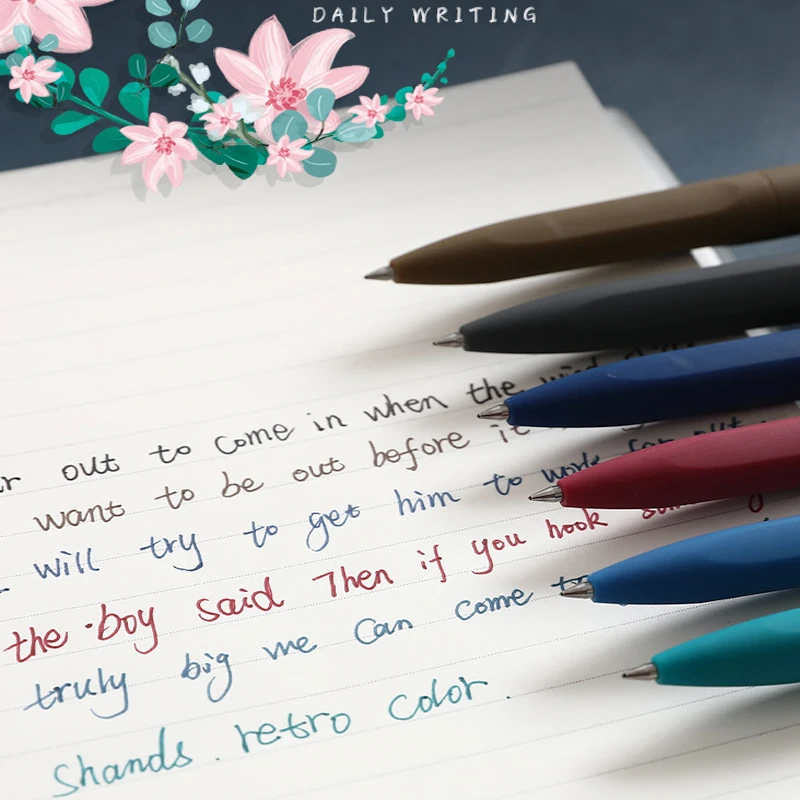 DAILY WRITING
out to come in when the wind
want to be out before it
will try to get him to work for out
the boy said Then if you hook
truly big we can come to
Shands. retro color.